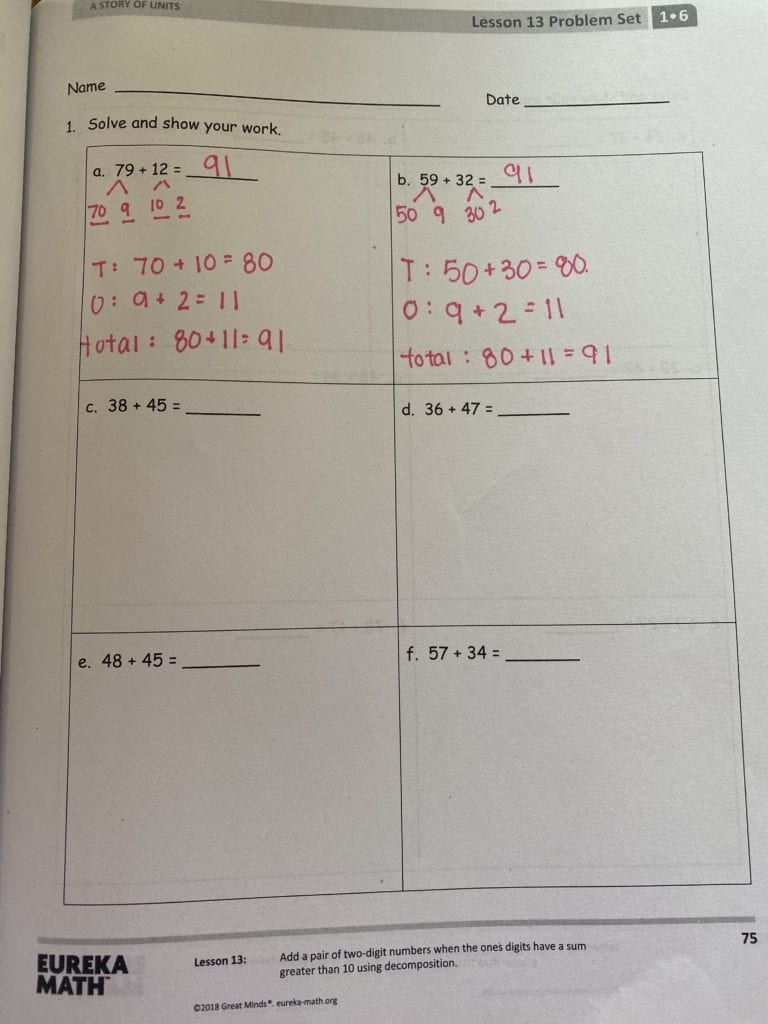 A STORY OF UNITS
Lesson 13 Problem Set 1•6
Name
Date
1. Solve and show your work.
a. 79 + 12 = 91
70 9 10 2
T: 70 + 10 = 80
O: 9 + 2 = 11
total: 80+11= 91
b. 59 + 32 = 91
50 9 30 2
T: 50+30= 80.
O: 9 + 2 = 11
total: 80+11 = 91
c. 38 + 45 =
d. 36 + 47 =
e. 48 + 45 =
f. 57 + 34 =
75
EUREKA
MATH™
Lesson 13: Add a pair of two-digit numbers when the ones digits have a sum
greater than 10 using decomposition.
©2018 Great Minds®. eureka-math.org